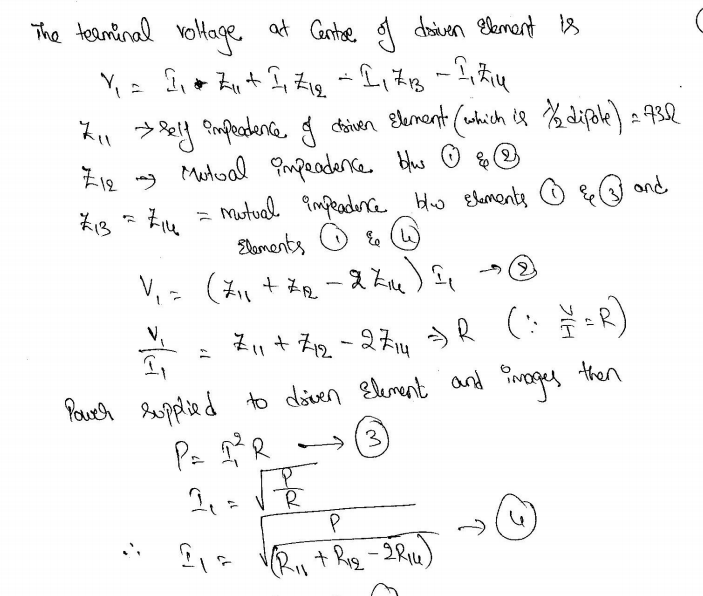 The terminal voltage at Centre of driven Element is
V₁ = I₁ • Z₁₁ + I₁ Z₁₂ - I₁ Z₁₃ - I₁ Z₁₄
Z₁₁ → Self impeadence of driven element (which is λ/2 dipole) = 73Ω
Z₁₂ → Mutual impeadence b/w ① & ②
Z₁₃ = Z₁₄ = mutual impeadence b/w elements ① & ③ and
Elements ① & ④
V₁ = (Z₁₁ + Z₁₂ - 2 Z₁₄) I₁ → ②
V₁/I₁ = Z₁₁ + Z₁₂ - 2Z₁₄ ⇒ R (∵ V/I = R)
Power supplied to driven Element and images then
P = I₁² R → ③
I₁ = √(P/R)
∴ I₁ = √(P/(R₁₁ + R₁₂ - 2R₁₄)) → ④